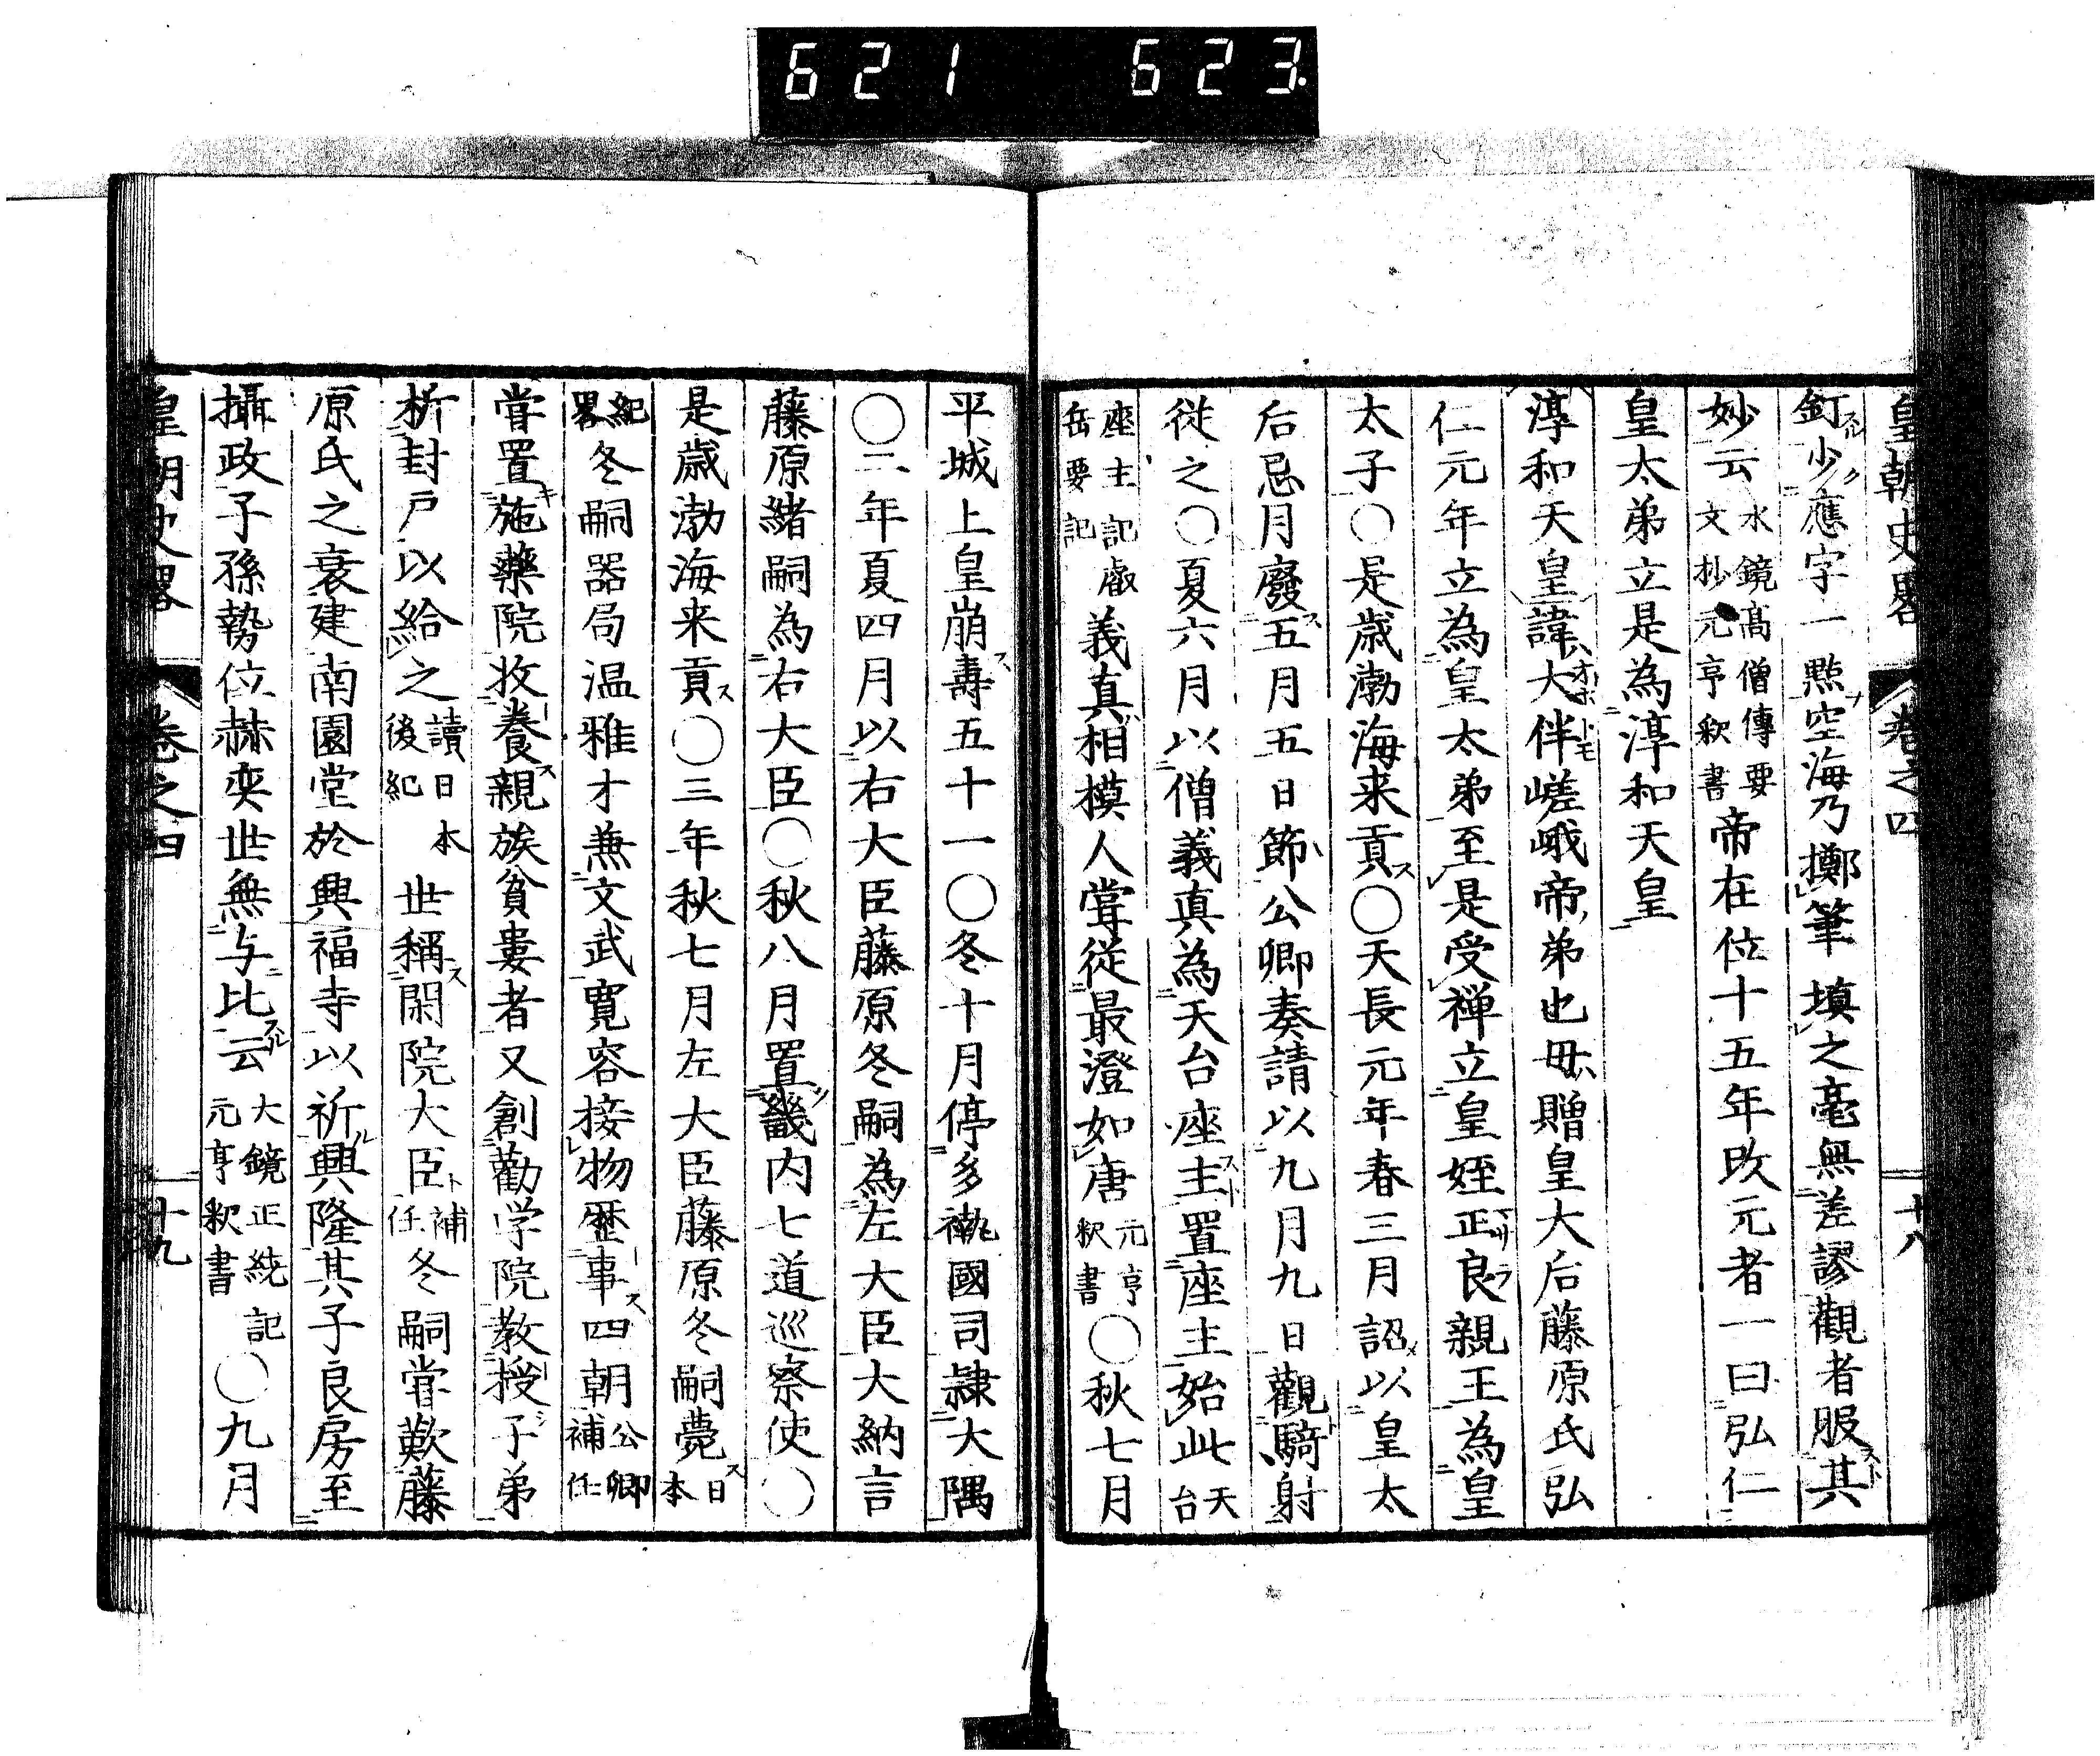 621 623.
皇朝史畧 卷之四 十八
釘少應字一點空海乃擲筆填之毫無差謬觀者服其
妙云水鏡高僧傳要文抄元亨釈書帝在位十五年改元者一曰弘仁
皇太弟立是為淳和天皇
淳和天皇諱大伴嵯峨帝弟也母贈皇大后藤原氏弘
仁元年立為皇太弟至是受禅立皇姪正良親王為皇
太子○是歳渤海来貢○天長元年春三月詔以皇太
后忌月廢五月五日節公卿奏請以九月九日觀騎射
従之○夏六月以僧義真為天台座主置座主始此天台
座主記叡岳要記義真相模人甞従最澄如唐元亨釈書○秋七月
平城上皇崩壽五十一○冬十月停多褹國司隷大隅
○二年夏四月以右大臣藤原冬嗣為左大臣大納言
藤原緒嗣為右大臣○秋八月置畿内七道巡察使○
是歳渤海来貢○三年秋七月左大臣藤原冬嗣薨日本
紀畧冬嗣器局温雅才兼文武寛容接物歴事四朝公卿補任
甞置施藥院收養親族貧婁者又創勸学院教授子弟
析封戸以給之讀日本後紀世稱閑院大臣補任冬嗣甞歎藤
原氏之衰建南園堂於興福寺以祈興隆其子良房至
攝政子孫勢位赫奕世無与比云大鏡正統記元亨釈書○九月
皇朝史畧 卷之四 十九